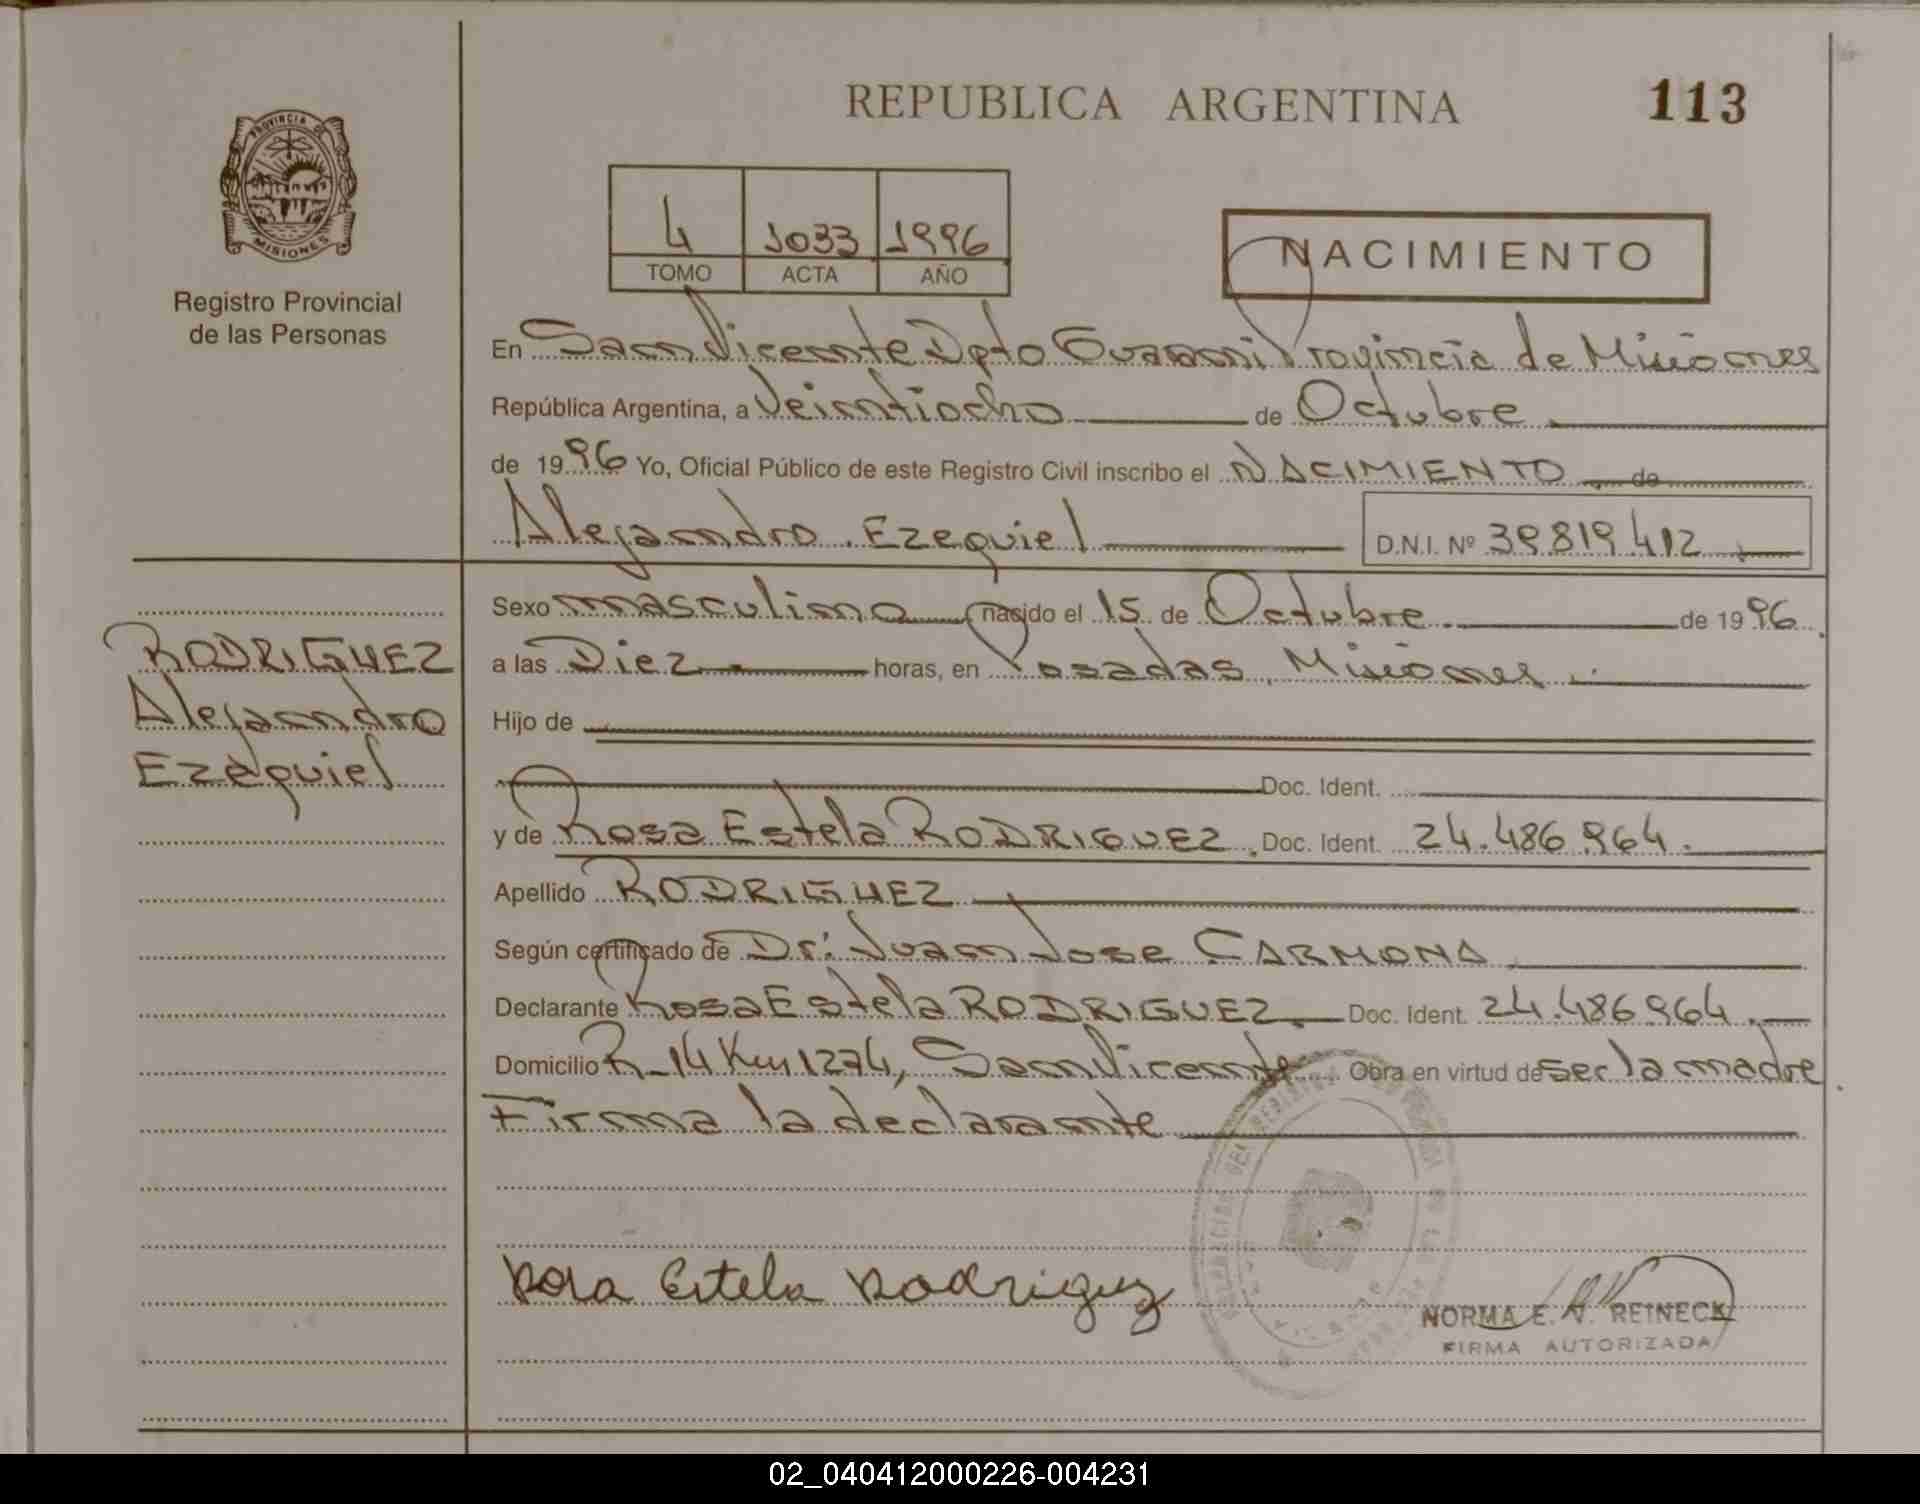 REPUBLICA ARGENTINA
113
PROVINCIA DE
MISIONES
Registro Provincial
de las Personas
4 1033 1996
TOMO ACTA AÑO
NACIMIENTO
En San Vicente Dpto Guarani Provincia de Misiones
República Argentina, a Veintiocho de Octubre
de 1996 Yo, Oficial Público de este Registro Civil inscribo el NACIMIENTO de
Alejandro Ezequiel D.N.I. Nº 39819412
Sexo masculino nacido el 15 de Octubre de 1996
a las Diez horas, en Posadas, Misiones.
Hijo de
Doc. Ident.
y de Rosa Estela RODRIGUEZ. Doc. Ident. 24.486.964.
Apellido RODRIGUEZ
Según certificado de Dr: Juan Jose CARMONA
Declarante Rosa Estela RODRIGUEZ. Doc. Ident. 24.486.964.
Domicilio R-14 Km 1274, San Vicente Obra en virtud de ser la madre.
Firma la declarante
RODRIGUEZ
Alejandro
Ezequiel
Rosa Estela Rodriguez
NORMA E. V. REINECK
FIRMA AUTORIZADA
02_040412000226-004231